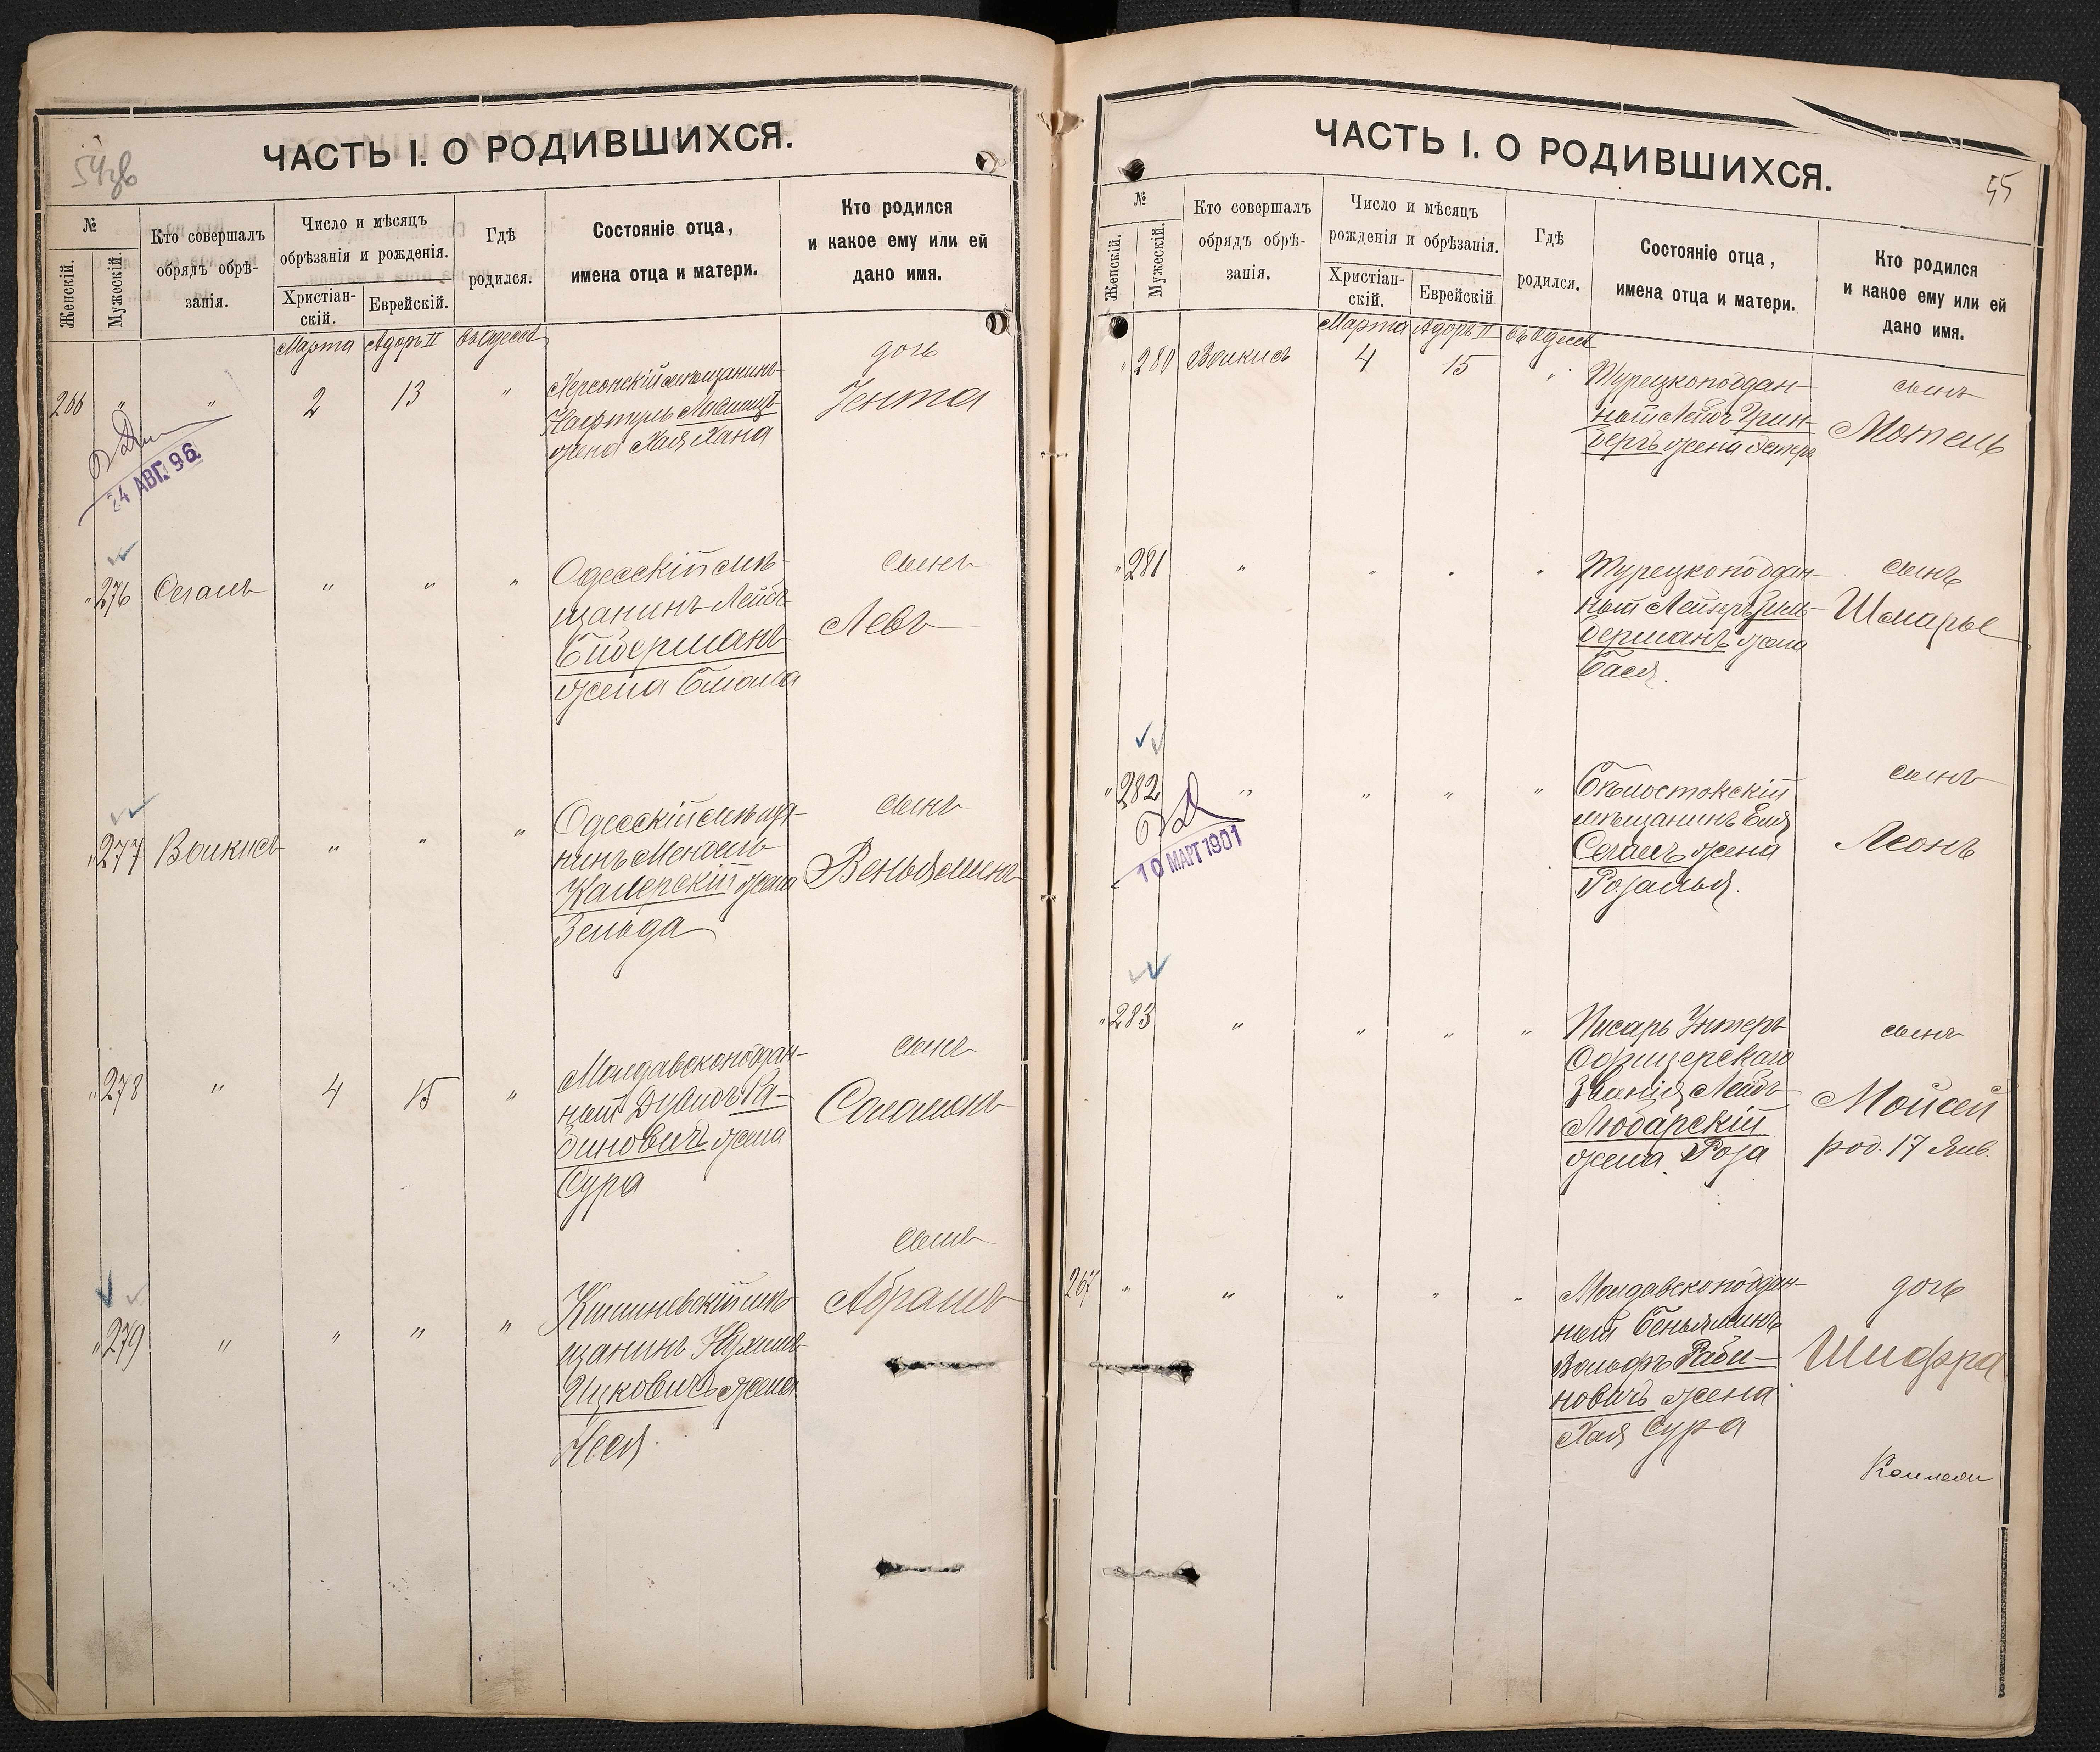 54об
ЧАСТЬ I. О РОДИВШИХСЯ.
№
Женскій.
Мужескій.
Кто совершалъ
обрядъ обрѣ-
занія.
Число и мѣсяцъ
обрѣзанія и рожденія.
Христіан-
скій.
Еврейскій.
Гдѣ
родился.
Состояніе отца,
имена отца и матери.
Кто родился
и какое ему или ей
дано имя.
Марта Адоръ II въ Одессѣ
266 " " 2 13 "
Херсонскій мѣщанинъ
Нафтуль
жена Хая Хана
дочь
Іента
24 АВГ. 96.
" 276 Сегаль " " "
Одесскій мѣ-
щанинъ Лейбъ
Бидерманъ
жена Блюма
сынъ
Левъ
" 277 Волкисъ " " "
Одесскій мѣща-
нинъ Мендель
Камерскій жена
Зельда
сынъ
Веньяминъ
" 278 " 4 15 "
Молдавскоподдан-
ный Дувидъ Ра-
биновичъ жена
Сура
сынъ
Соломонъ
" 279 " " " "
Кишиневскій мѣ-
щанинъ Нухимъ
Ицковичъ жена
Неся.
сынъ
Абрамъ
ЧАСТЬ I. О РОДИВШИХСЯ.
55
№
Женскій.
Мужескій.
Кто совершалъ
обрядъ обрѣ-
занія.
Число и мѣсяцъ
рожденія и обрѣзанія.
Христіан-
скій.
Еврейскій
Гдѣ
родился.
Состояніе отца,
имена отца и матери.
Кто родился
и какое ему или ей
дано имя.
Марта Адоръ II въ Одессѣ
" 280 Волкисъ 4 15 "
Турецкоподдан-
ный Лейбъ Грин-
бергъ жена Эстеръ
сынъ
Мотель
" 281 " " " "
Турецкоподдан-
ный Лейзеръ Зиль-
берманъ жена
Бася.
сынъ
Шмарье
" 282 " " " "
Бѣлостокскій
мѣщанинъ Еля
Сегалъ жена
Розалья.
сынъ
Леонъ
10 МАРТ 1901
" 283 " " " "
Писарь Унтеръ
Офицерскаго
Званія Лейбъ
Любарскій
жена Роза
сынъ
Мойсей
род. 17 Янв.
267 " " " " "
Молдавскоподдан-
ный Беньяминъ
Вольфъ Раби-
новичъ жена
Хая Сура
дочь
Шифра